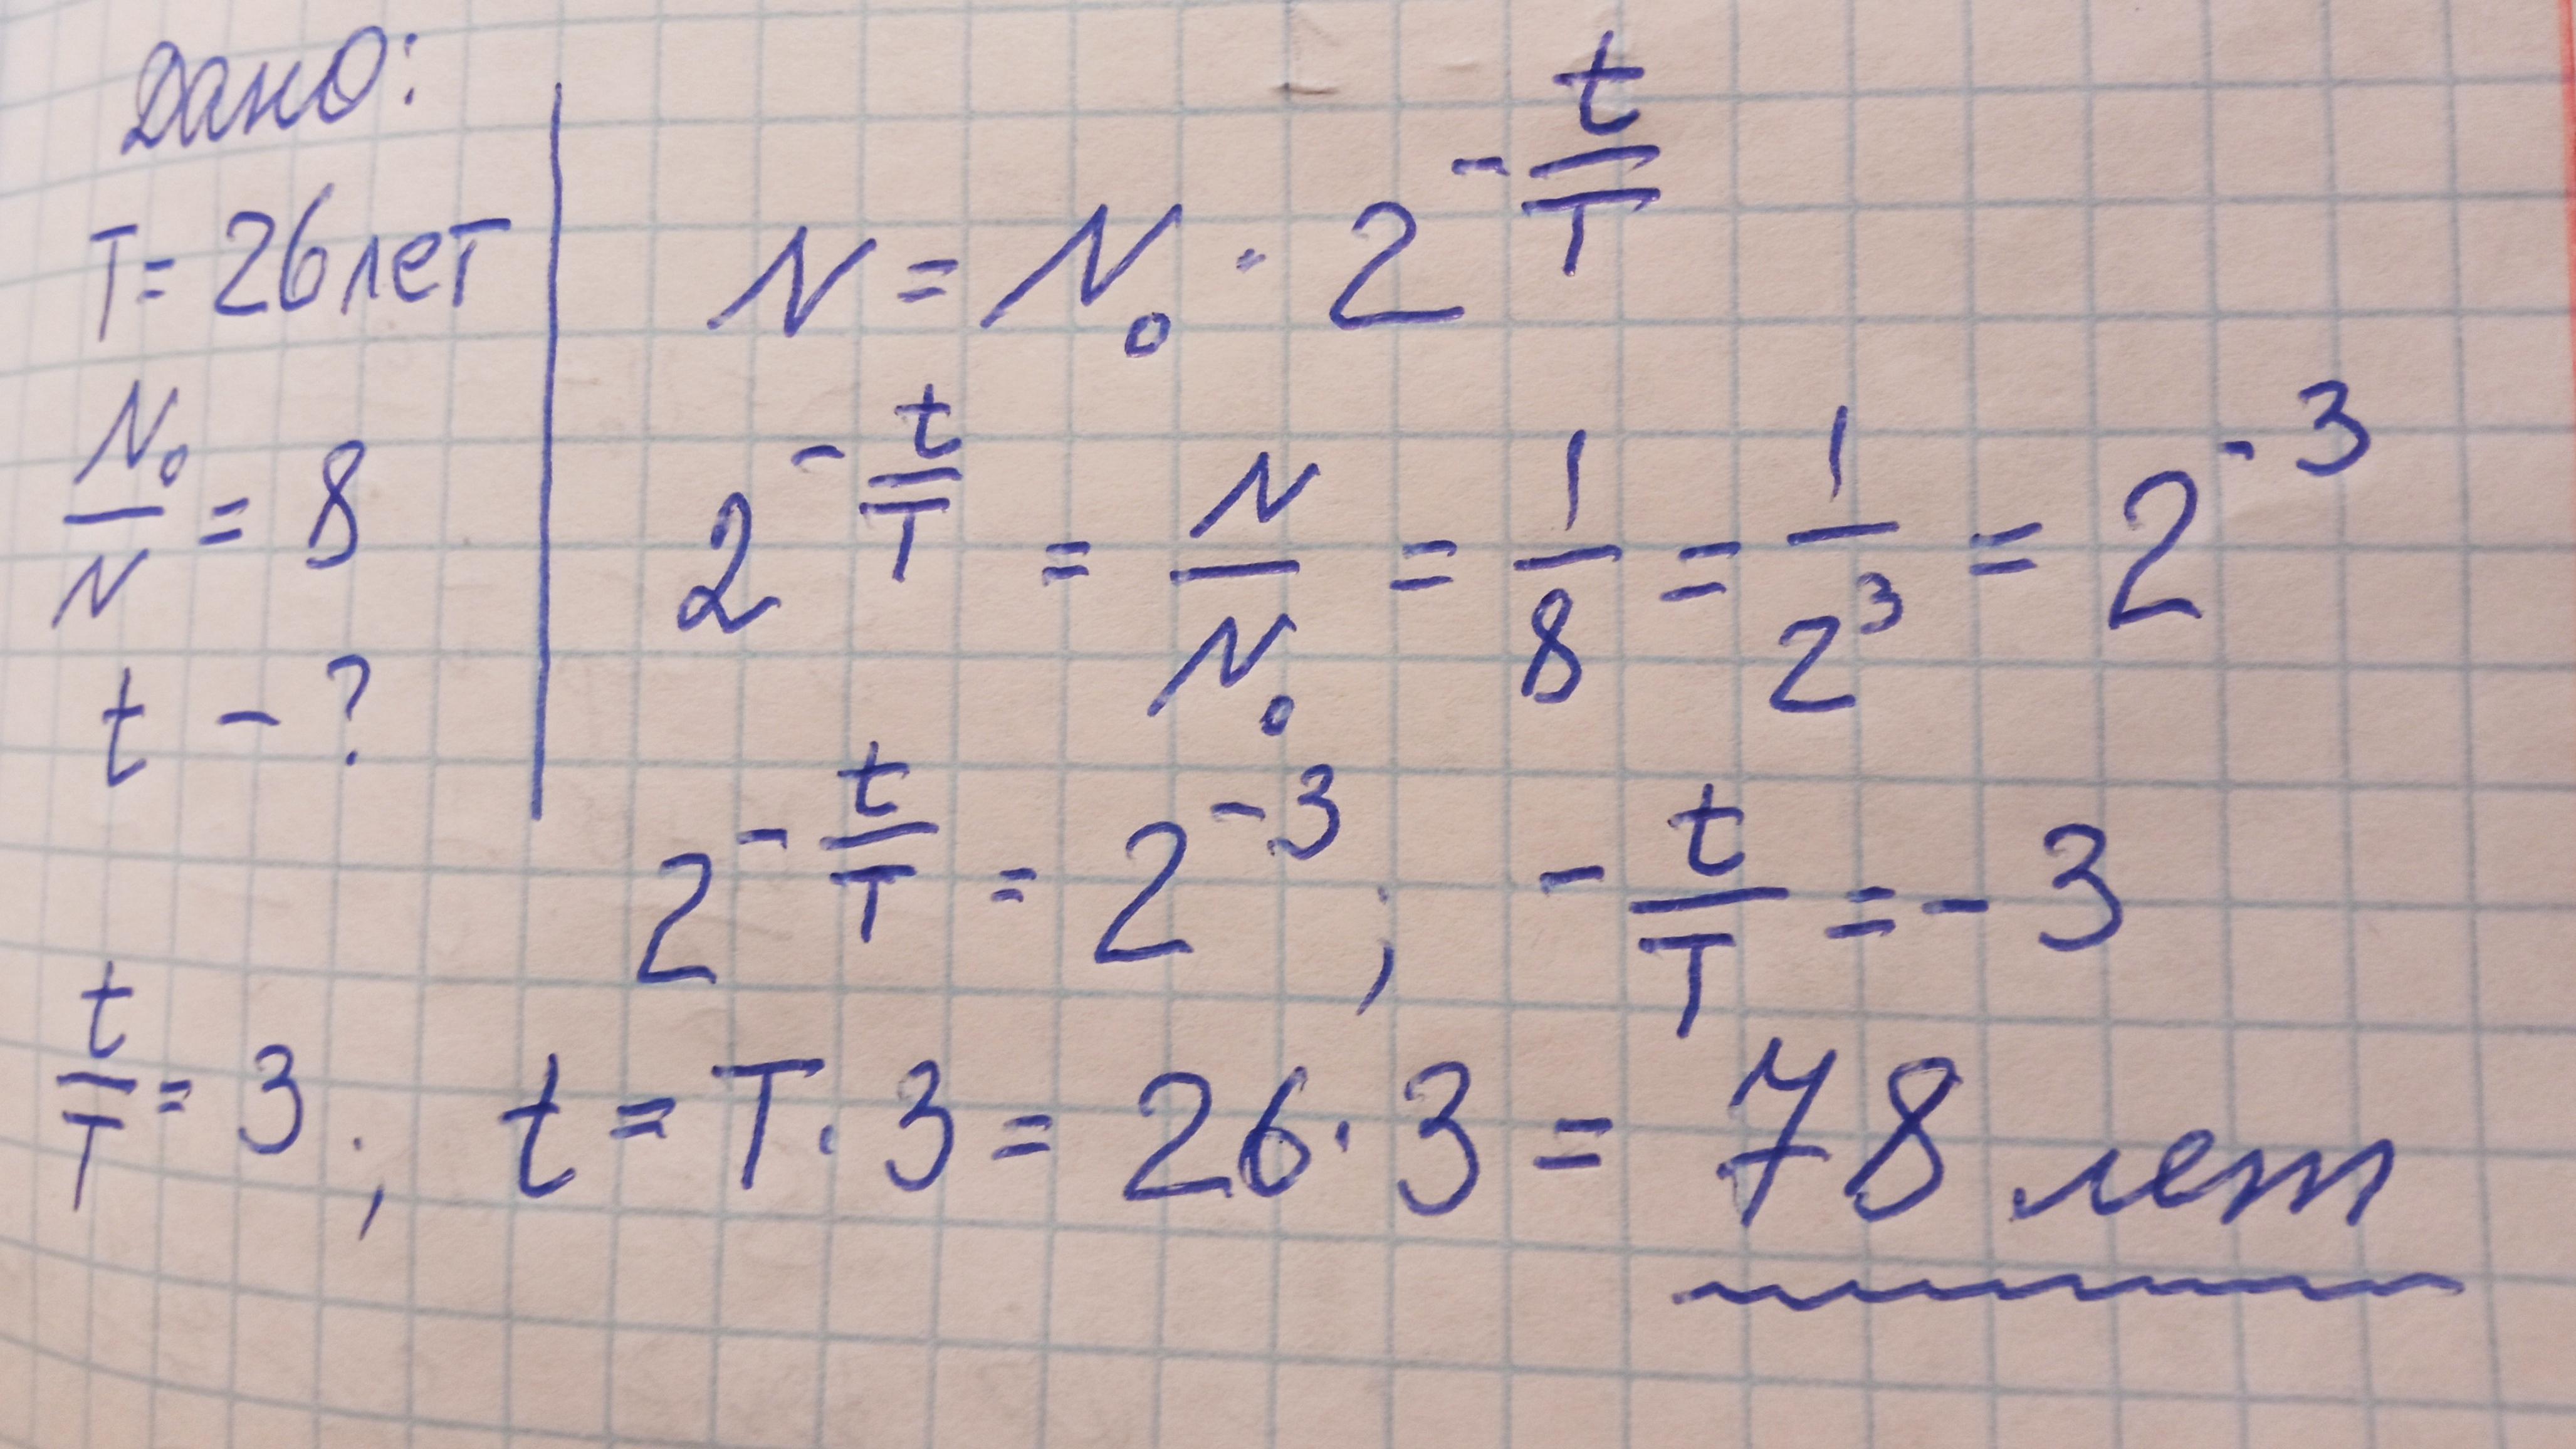 Дано:
T = 26 лет
N₀/N = 8
t - ?
N = N₀ · 2^(-t/T)
2^(-t/T) = N/N₀ = 1/8 = 1/2³ = 2⁻³
2^(-t/T) = 2⁻³ ; -t/T = -3
t/T = 3 ; t = T · 3 = 26 · 3 = 78 лет